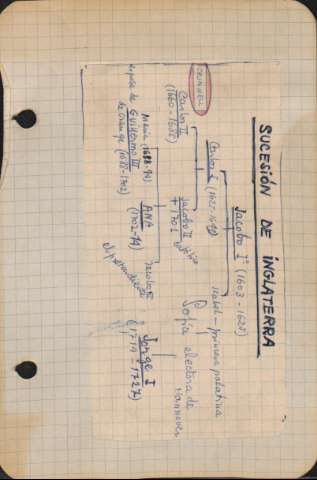 SUCESIÓN DE INGLATERRA
Jacobo Iº (1603-1625)
Carlos I (1625-1649)
Isabel - princesa palatina
CRONWEL
Carlos II
(1660-1685)
Jacobo II
+ 1701
Sofia electora de
Hannover
María (1688-94)
esposa de Guillermo III
de Orange (1688-1702)
ANA
(1702-14)
Jacobo
Jorge I
(1714-1727)